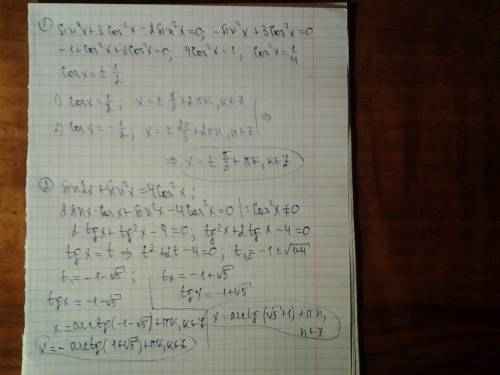 ①
sin²x+3cos²x-2sin²x=0, -sin²x+3cos²x=0
-1+cos²x+3cos²x=0, 4cos²x=1; cos²x=1/4
cosx=±1/2
1) cosx=1/2, x=±π/3+2πk, k∈Z
2) cosx=-1/2; x=±2π/3+2πn, n∈Z ⇒
⇒ x=±π/3+πk, k∈Z
②
sin2x+sin²x=4cos²x;
2sinx·cosx+sin²x-4cos²x=0 |:cos²x≠0
2tgx+tg²x-4=0; tg²x+2tgx-4=0
tgx=t ⇒ t²+2t-4=0; t₁,₂=-1±√1+4
t₁=-1-√5; t₂=-1+√5
tgx=-1-√5 tgx=-1+√5
x=arctg(-1-√5)+πk, k∈Z x=arctg(√5+1)+πn,
n∈Z
x=-arctg(1+√5)+πk, k∈Z